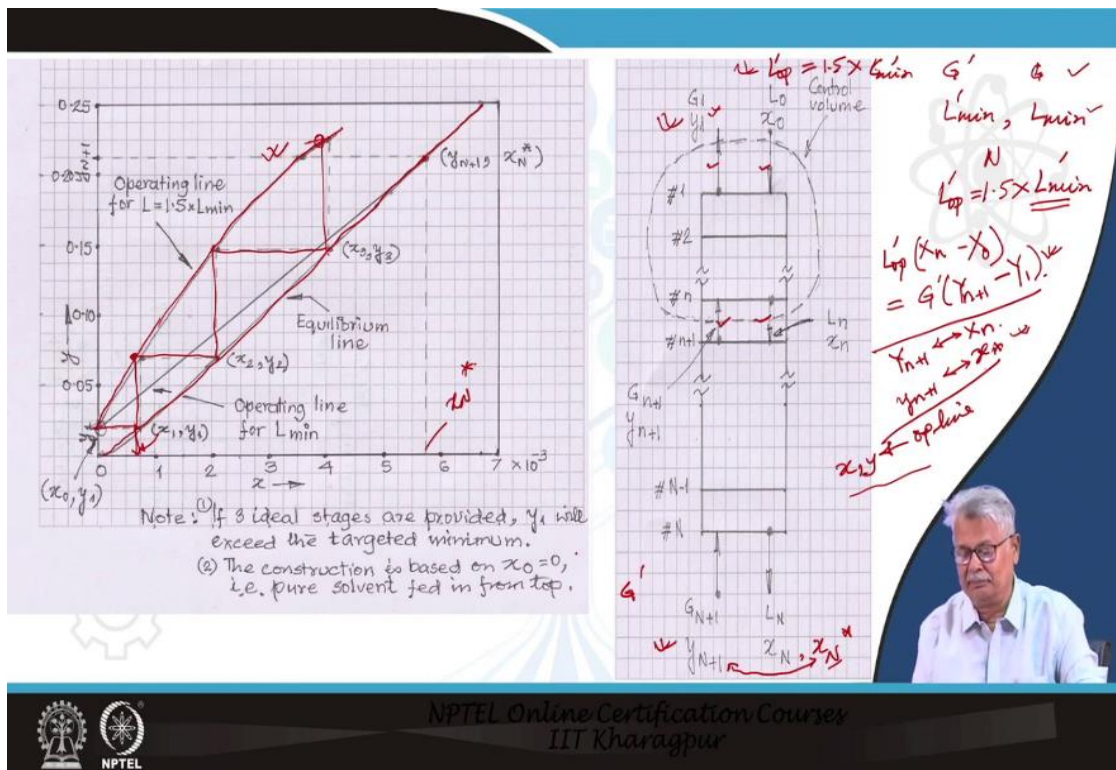 0.25
0.20
y_{N+1}
0.15
0.10
0.05
y →
y_1
0
1
2
3
4
5
6
7 × 10^{-3}
x →
x
Operating line
for L=1.5×Lmin
(y_{N+1}, x_N^*)
(x_3, y_3)
Equilibrium
line
(x_2, y_2)
Operating line
for Lmin
(x_1, y_1)
x_N^*
(x_0, y_1)
Note: (1) If 3 ideal stages are provided, y_1 will
exceed the targeted minimum.
(2) The construction is based on x_0 = 0,
i.e. pure solvent fed in from top.
L'_{op} = 1.5 × L'_{min}
G'
G
G_1
L_0
y_1
x_0
Control
volume
#1
#2
#n
#n+1
L_n
x_n
G_{n+1}
y_{n+1}
#N-1
#N
G'
G_{N+1}
L_N
y_{N+1}
x_N, x_N^*
L'_{min}, L_{min}
N
L'_{op} = 1.5 × L'_{min}
L'_{op}(X_n - X_0)
= G'(Y_{n+1} - Y_1)
Y_{n+1} ↔ X_n
y_{n+1} ↔ x_n
x, y ← op line
NPTEL
NPTEL Online Certification Courses
IIT Kharagpur